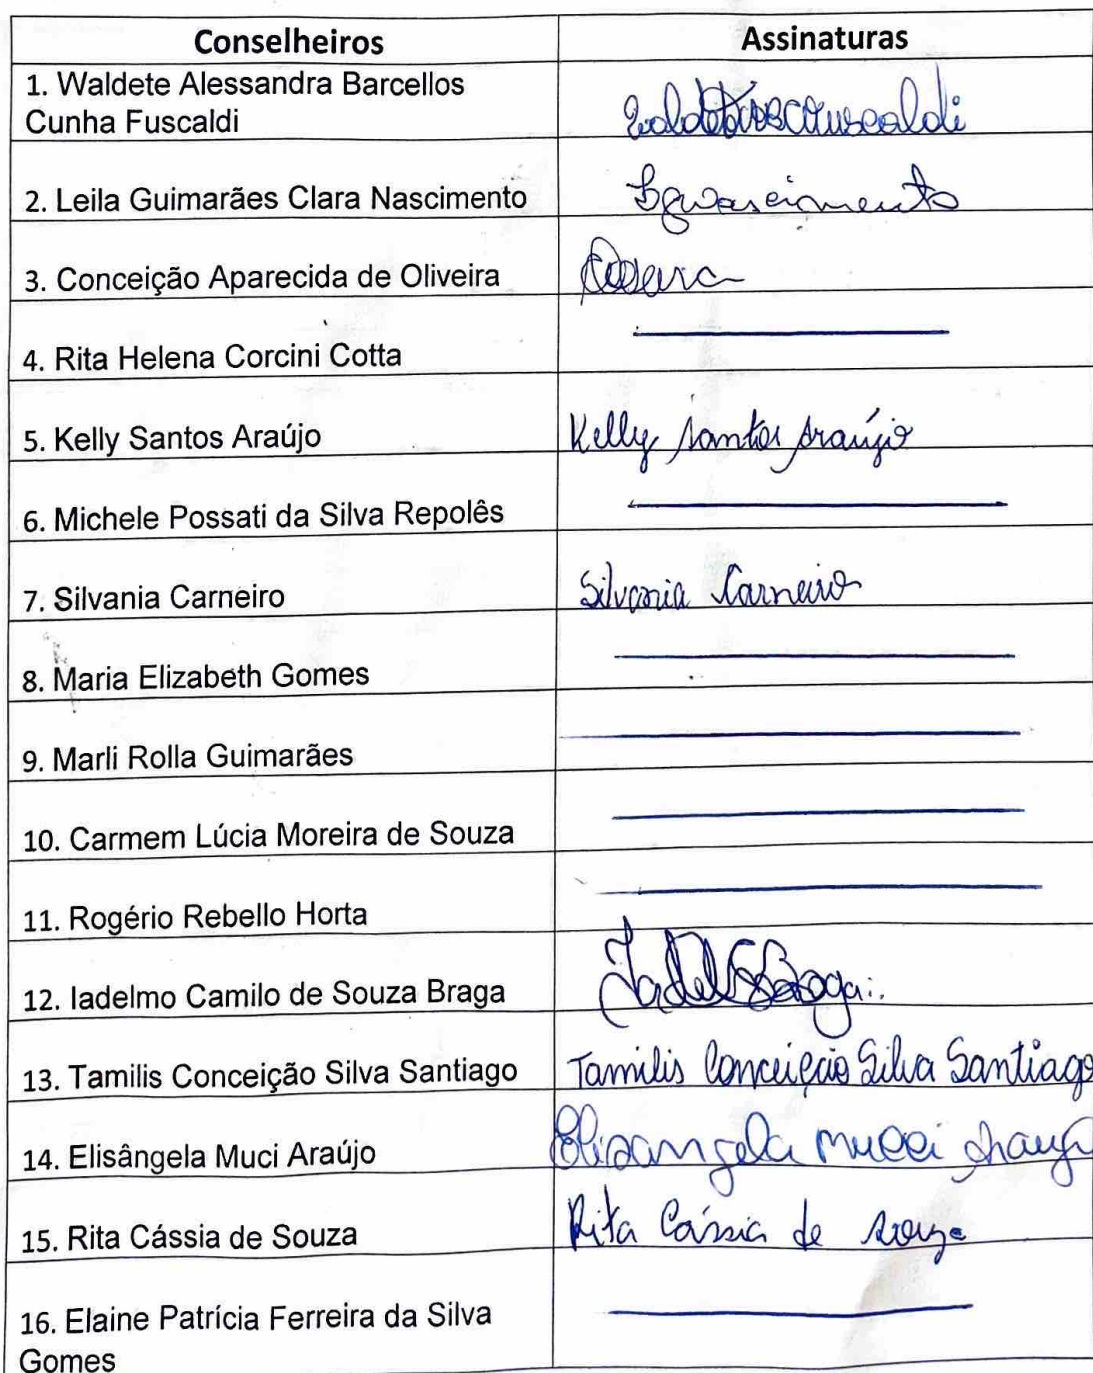 Conselheiros
Assinaturas
1. Waldete Alessandra Barcellos
Cunha Fuscaldi
2. Leila Guimarães Clara Nascimento
3. Conceição Aparecida de Oliveira
4. Rita Helena Corcini Cotta
5. Kelly Santos Araújo
Kelly Santos Araújo
6. Michele Possati da Silva Repolês
7. Silvania Carneiro
Silvania Carneiro
8. Maria Elizabeth Gomes
9. Marli Rolla Guimarães
10. Carmem Lúcia Moreira de Souza
11. Rogério Rebello Horta
12. Iadelmo Camilo de Souza Braga
13. Tamilis Conceição Silva Santiago
Tamilis Conceição Silva Santiago
14. Elisângela Muci Araújo
Elisangela Mucci
15. Rita Cássia de Souza
Rita Cássia de Souza
16. Elaine Patrícia Ferreira da Silva
Gomes